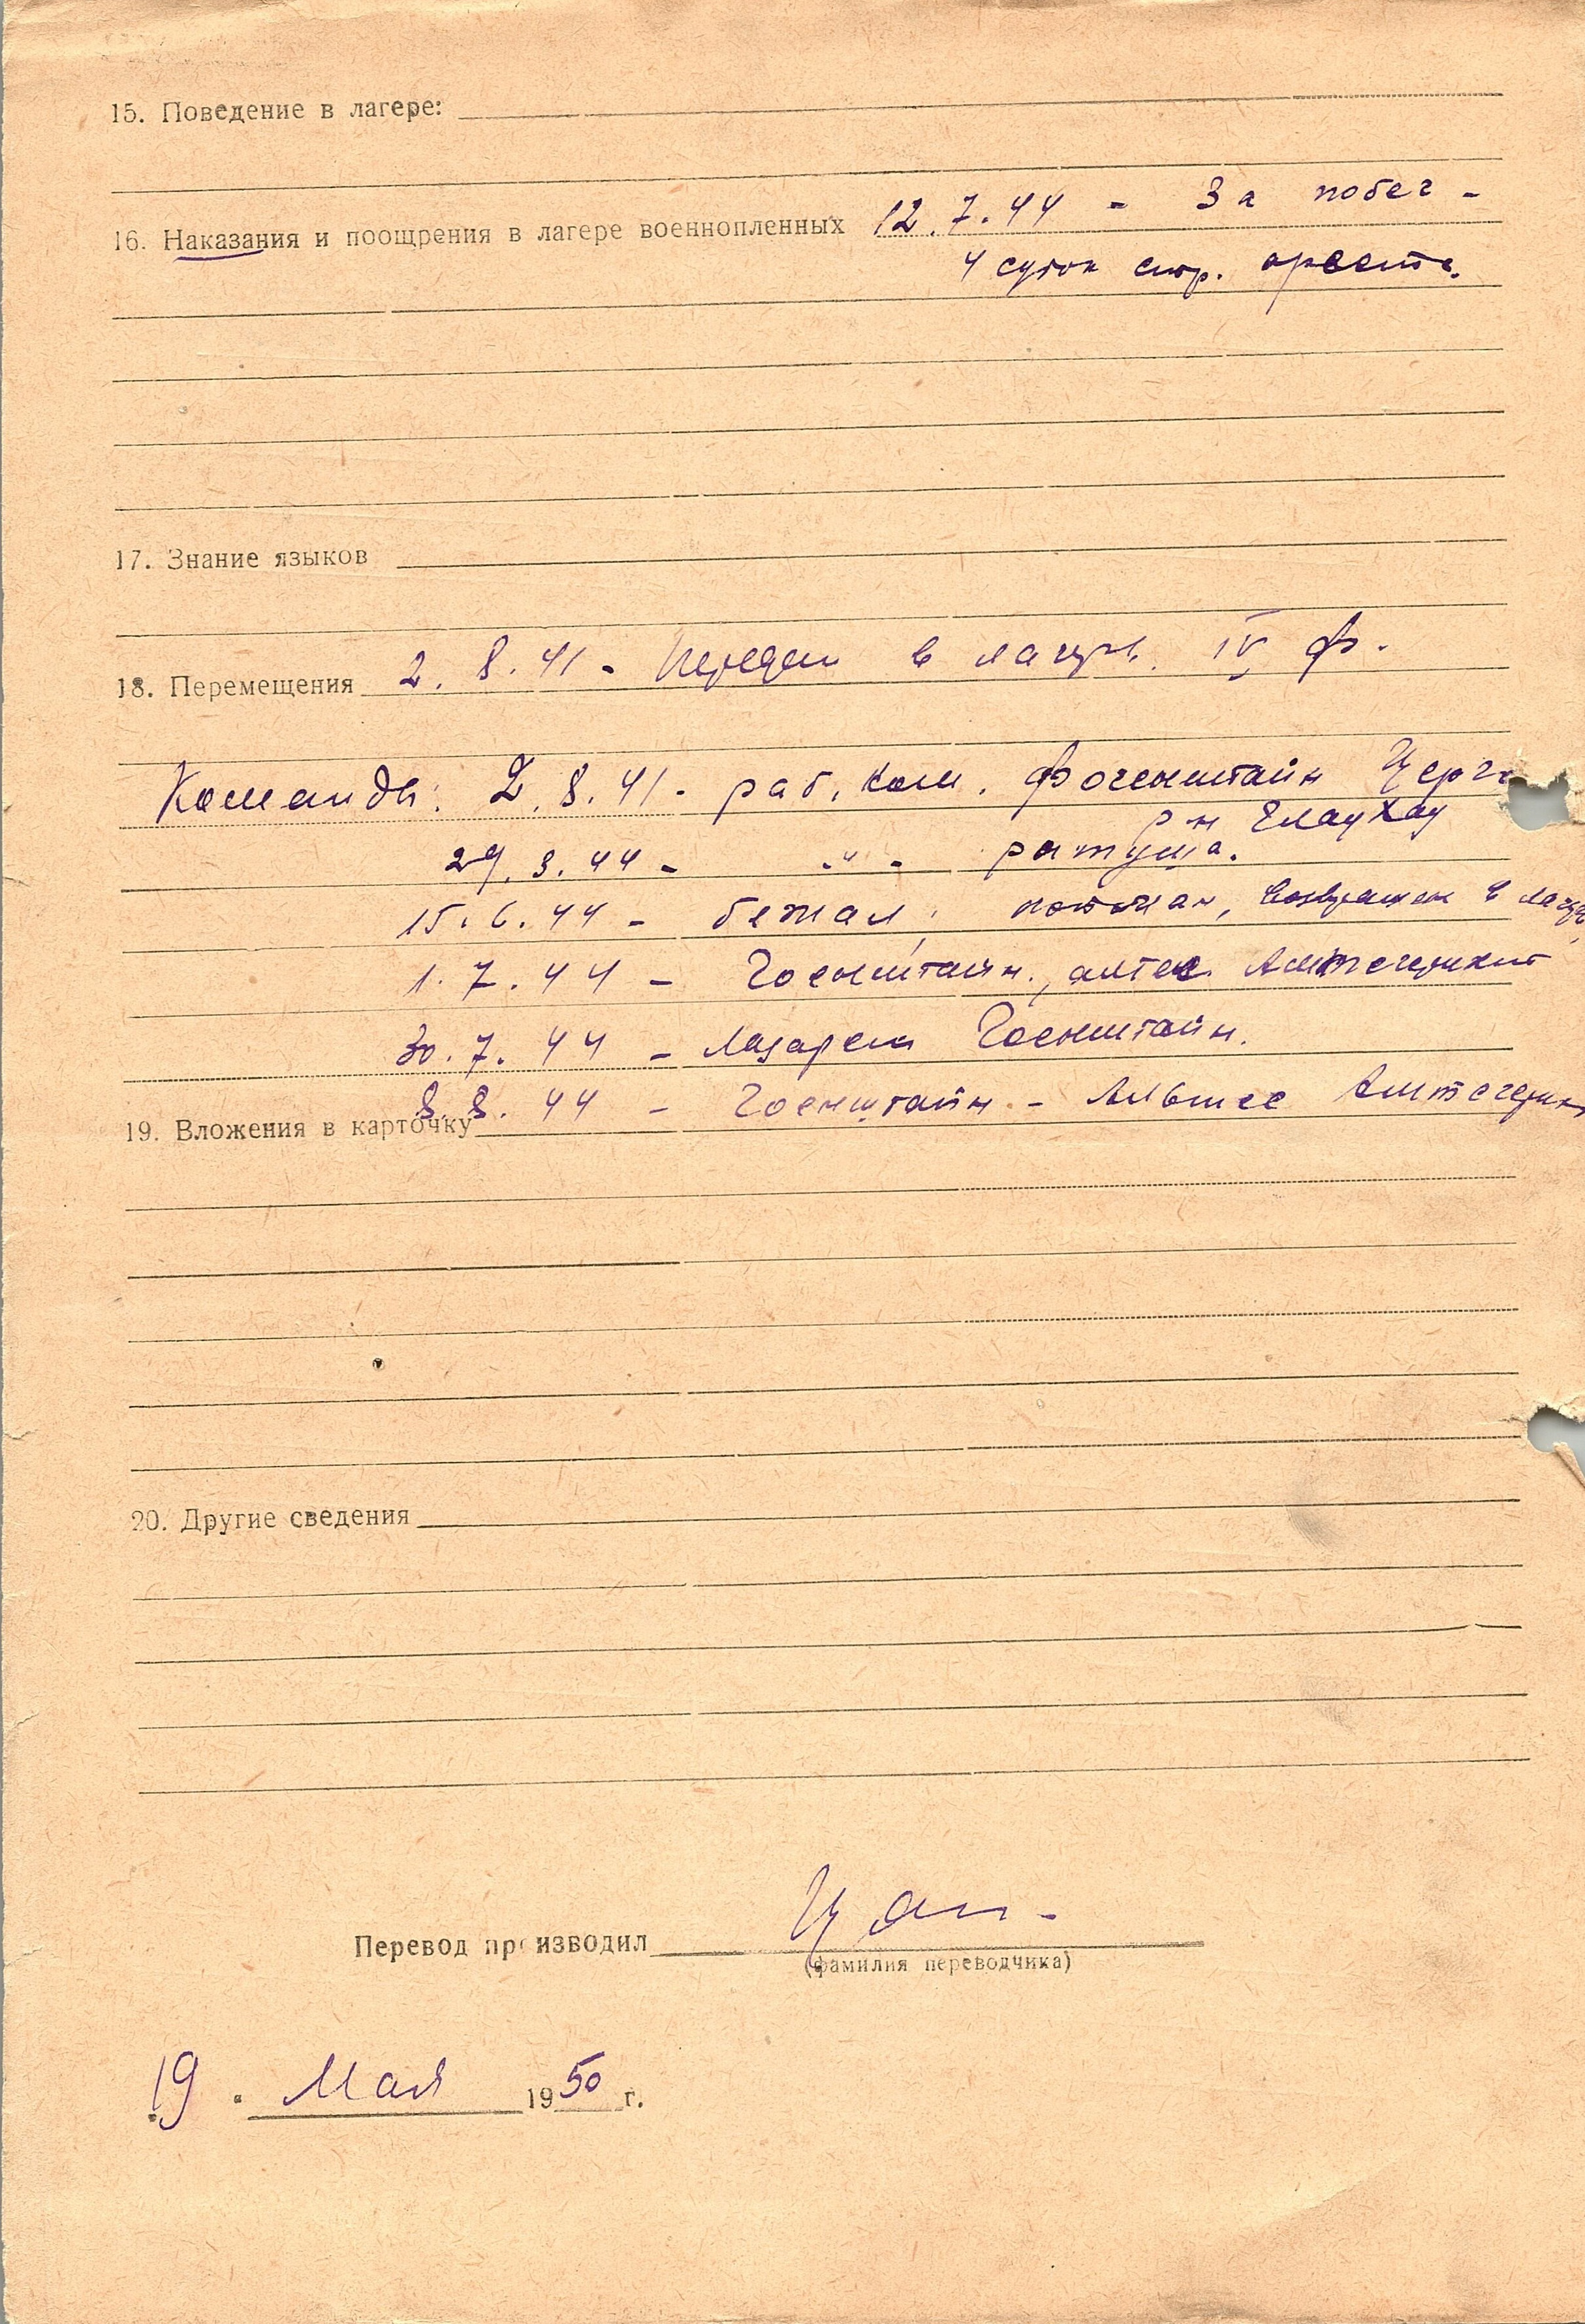 15. Поведение в лагере:
16. Наказания и поощрения в лагере военнопленных 12.7.44 - За побег -
4 суток стр. ареста.
17. Знание языков
18. Перемещения 2.8.41 - Передан в лагерь IV Ф.
Команды: 2.8.41 - раб. ком.
р-н Глаухау
29.3.44 - -"- ратуша.
15.6.44 - бежал, пойман, возвращен в лагерь
1.7.44 - Гоенштайн,
30.7.44 - Лазарет Гоенштайн.
8.8.44 - Гоенштайн -
19. Вложения в карточку
20. Другие сведения
Перевод производил
(фамилия переводчика)
19 . Мая 1950 г.